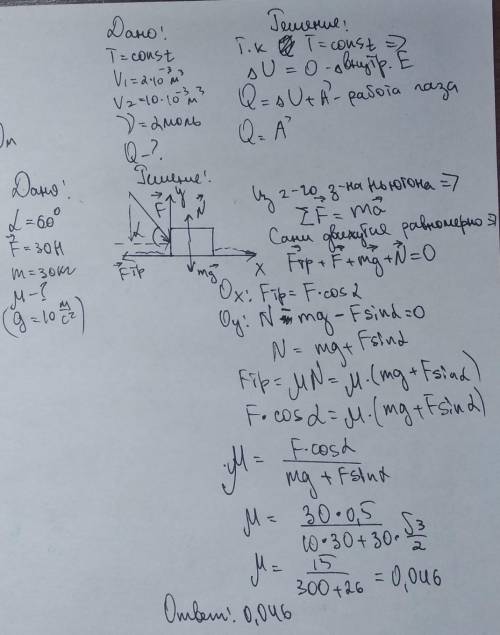 Дано:
T = const
V1 = 2·10⁻³ м³
V2 = 10·10⁻³ м³
ν = 2 моль
Q - ?
Решение:
Т.к T = const =>
ΔU = 0 - Δ внутр. E
Q = ΔU + A' - работа газа
Q = A'
Дано:
α = 60°
F = 30 Н
m = 30 кг
μ - ?
(g = 10 м/с²)
Решение:
F y N
α
Fтр mg x
Из 2-го з-на Ньютона =>
ΣF = ma
Сани движутся равномерно =>
Fтр + F + mg + N = 0
Ox: Fтр = F·cosα
Oy: N - mg - Fsinα = 0
N = mg + Fsinα
Fтр = μN = μ·(mg + Fsinα)
F·cosα = μ·(mg + Fsinα)
μ = F·cosα / (mg + Fsinα)
μ = 30·0,5 / (10·30 + 30·√3/2)
μ = 15 / (300 + 26) = 0,046
Ответ: 0,046